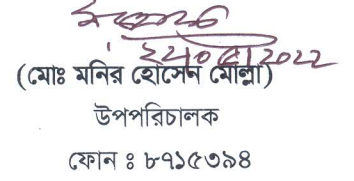 ২২/০৫/2022
(মোঃ মনির হোসেন মোল্লা)
উপপরিচালক
ফোন ঃ ৮৭১৫৩৯৪